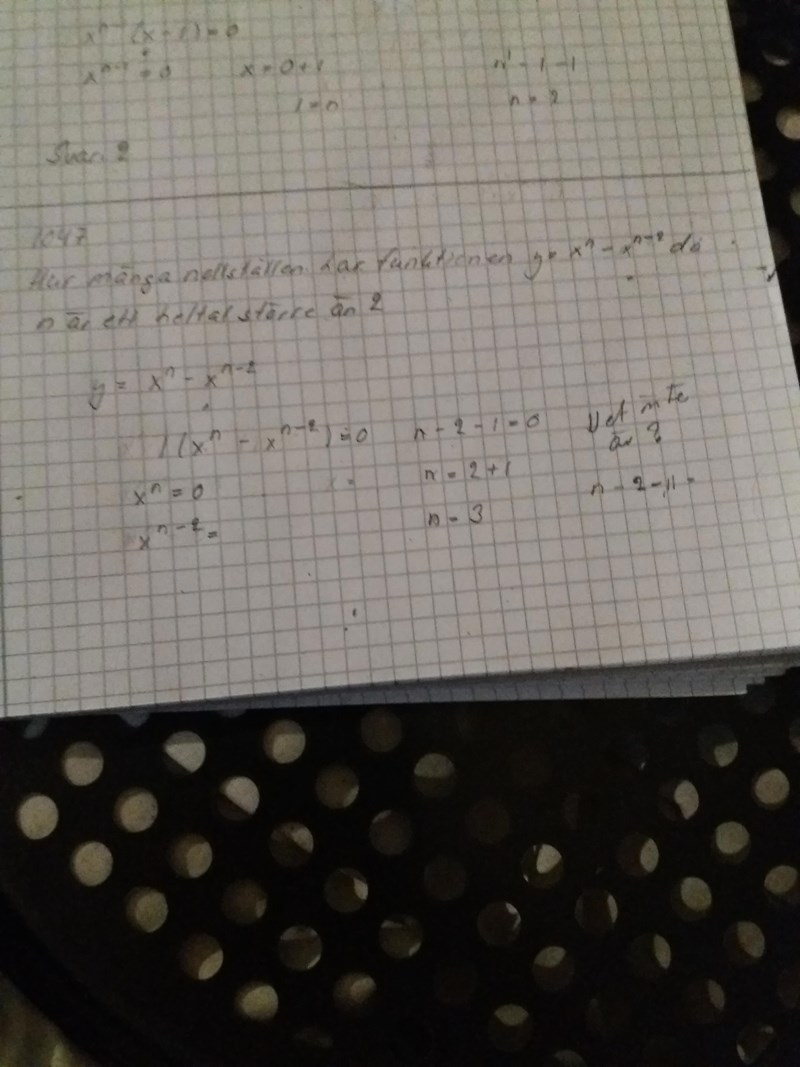 xⁿ⁻¹(x-1)=0
xⁿ⁻¹=0 x=0+1 n-1-1
1=n n=2
Svar: 2
1047
Hur många nollställen har funktionen y= xⁿ - xⁿ⁻² då
n är ett heltal större än 2
y= xⁿ - xⁿ⁻²
1(xⁿ - xⁿ⁻²)=0 n-2-1=0 Vet inte
xⁿ=0 n=2+1 n-2-
xⁿ⁻²= n=3